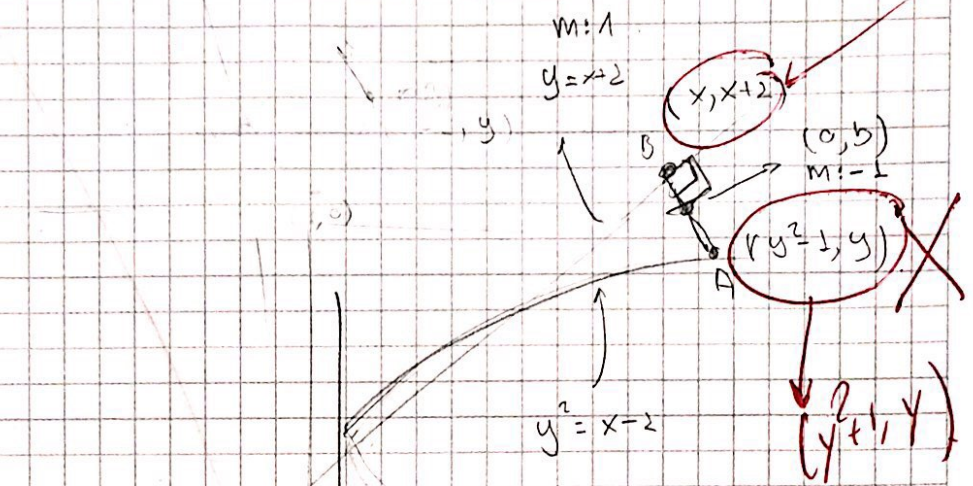 m:1
y=x+2
(x, x+2)
, y)
B
(a,b)
m:-1
(y²-1, y)
A
y²=x-2
(y²+1, y)